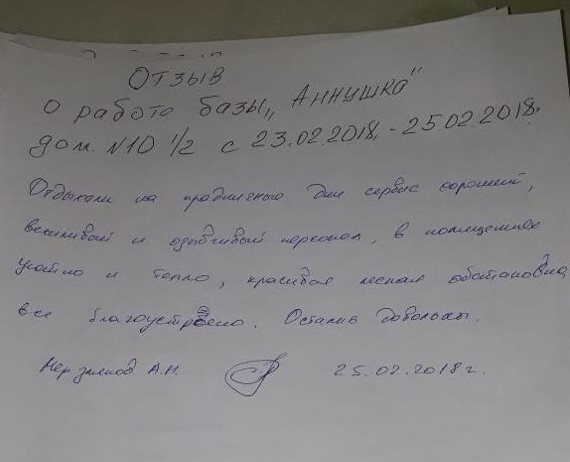 Отзыв
о работе базы „Аннушка"
дом N10 1/2 с 23.02.2018. - 25.02.2018.
Отдыхали на праздничного дни сервис хороший,
вежливый и отзывчивый персонал, в помещениях
уютно и тепло, красивая лесная обстановка,
все благоустроено. Остались довольны.
А.Н. 25.02.2018г.